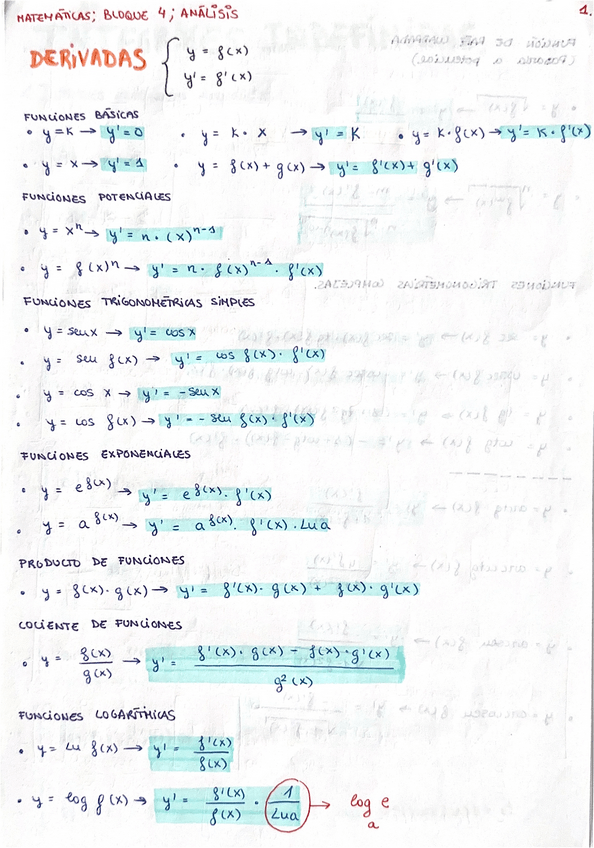 MATEMÁTICAS; BLOQUE 4; ANÁLISIS 1.
DERIVADAS { y = f(x)
y' = f'(x)
FUNCIONES BÁSICAS
• y=K → y'=0 • y = K · X → y' = K • y = K·f(x) → y' = K·f'(x)
• y = x → y'=1 • y = f(x) + g(x) → y' = f'(x) + g'(x)
FUNCIONES POTENCIALES
• y = xⁿ → y' = n · (x)ⁿ⁻¹
• y = f(x)ⁿ → y' = n · f(x)ⁿ⁻¹ · f'(x)
FUNCIONES TRIGONOMÉTRICAS SIMPLES
• y = sen x → y' = cos x
• y = sen f(x) → y' = cos f(x) · f'(x)
• y = cos x → y' = -sen x
• y = cos f(x) → y' = -sen f(x) · f'(x)
FUNCIONES EXPONENCIALES
• y = e^f(x) → y' = e^f(x) · f'(x)
• y = a^f(x) → y' = a^f(x) · f'(x) · Ln a
PRODUCTO DE FUNCIONES
• y = f(x) · g(x) → y' = f'(x) · g(x) + f(x) · g'(x)
COCIENTE DE FUNCIONES
• y = f(x)/g(x) → y' = f'(x) · g(x) - f(x) · g'(x) / g²(x)
FUNCIONES LOGARÍTMICAS
• y = Ln f(x) → y' = f'(x)/f(x)
• y = log f(x) → y' = f'(x)/f(x) · 1/Ln a → log e
a